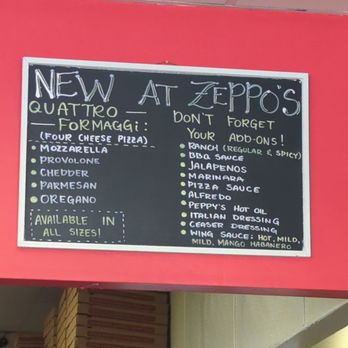 NEW AT ZEPPO'S
QUATTRO —
— FORMAGGI:
(FOUR CHEESE PIZZA)
• MOZZARELLA
• PROVOLONE
• CHEDDER
• PARMESAN
• OREGANO
AVAILABLE IN
ALL SIZES!
DON'T FORGET
YOUR ADD-ONS!
• RANCH (REGULAR & SPICY)
• BBQ SAUCE
• JALAPENOS
• MARINARA
• PIZZA SAUCE
• ALFREDO
• PEPPY'S HOT OIL
• ITALIAN DRESSING
• CEASER DRESSING
• WING SAUCE: HOT, MILD,
MILD, MANGO HABANERO